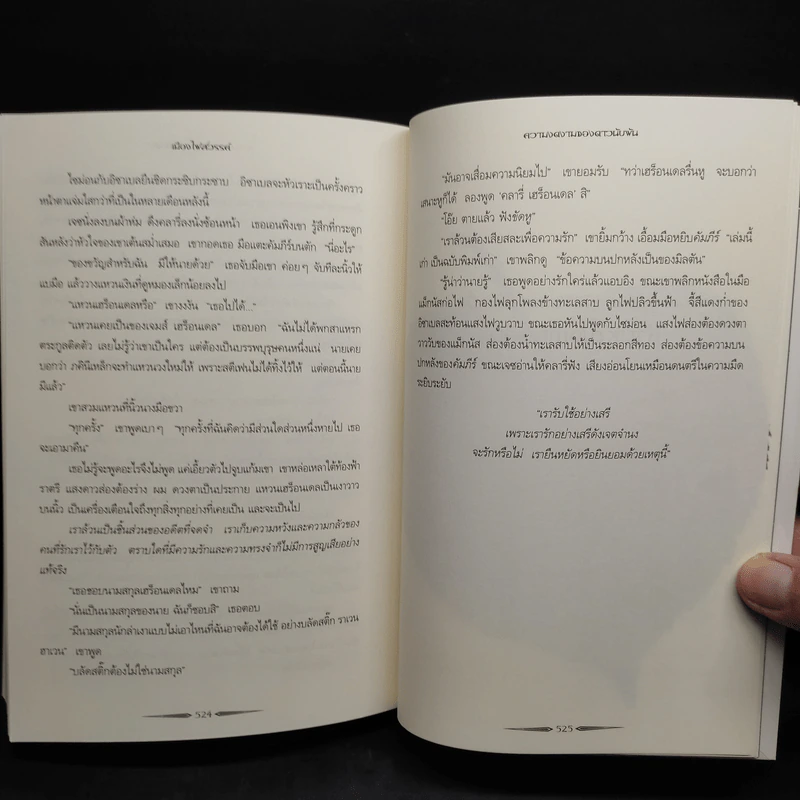 เมืองไฟสวรรค์
ไซม่อนกับอิซาเบลยืนชิดกระซิบกระซาบ อิซาเบลจะหัวเราะเป็นครั้งคราว
หน้าตาแจ่มใสกว่าที่เป็นในหลายเดือนหลังนี้
เจซนั่งลงบนผ้าห่ม ดึงคลารี่ลงนั่งซ้อนหน้า เธอเอนพิงเขา รู้สึกที่กระดูก
สันหลังว่าหัวใจของเขาเต้นสม่ำเสมอ เขากอดเธอ มือแตะคัมภีร์บนตัก “นี่อะไร”
“ของขวัญสำหรับฉัน มีให้นายด้วย” เธอจับมือเขา ค่อยๆ จับทีละนิ้วให้
แบมือ แล้ววางแหวนเงินที่ดูหมองเล็กน้อยลงไป
“แหวนเฮร็อนเดลหรือ” เขางงงัน “เธอไปได้...”
“แหวนเคยเป็นของเจมส์ เฮร็อนเดล” เธอบอก “ฉันไม่ได้พกสาแหรก
ตระกูลติดตัว เลยไม่รู้ว่าเขาเป็นใคร แต่ต้องเป็นบรรพบุรุษคนหนึ่งแน่ นายเคย
บอกว่า ภคินีเหล็กจะทำแหวนวงใหม่ให้ เพราะสตีเฟนไม่ได้ทิ้งไว้ให้ แต่ตอนนี้นาย
มีแล้ว”
เขาสวมแหวนที่นิ้วนางมือขวา
“ทุกครั้ง” เขาพูดเบาๆ “ทุกครั้งที่ฉันคิดว่ามีส่วนใดส่วนหนึ่งหายไป เธอ
จะเอามาคืน”
เธอไม่รู้จะพูดอะไรจึงไม่พูด แค่เอี้ยวตัวไปจูบแก้มเขา เขาหล่อเหลาใต้ท้องฟ้า
ราตรี แสงดาวส่องต้องร่าง ผม ดวงตาเป็นประกาย แหวนเฮร็อนเดลเป็นเงาวาว
บนนิ้ว เป็นเครื่องเตือนใจถึงทุกสิ่งทุกอย่างที่เคยเป็น และจะเป็นไป
เราล้วนเป็นชิ้นส่วนของอดีตที่จดจำ เราเก็บความหวังและความกลัวของ
คนที่รักเราไว้กับตัว ตราบใดที่มีความรักและความทรงจำก็ไม่มีการสูญเสียอย่าง
แท้จริง
“เธอชอบนามสกุลเฮร็อนเดลไหม” เขาถาม
“นั่นเป็นนามสกุลของนาย ฉันก็ชอบสิ” เธอตอบ
“มีนามสกุลนักล่าเงาแบบไม่เอาไหนที่ฉันอาจต้องได้ใช้ อย่างบลัดสติ๊ก ราเวน
ฮาเวน” เขาพูด
“บลัดสติ๊กต้องไม่ใช่นามสกุล”
524
ความงดงามของดาวนับพัน
“มันอาจเสื่อมความนิยมไป” เขายอมรับ “ทว่าเฮร็อนเดลรื่นหู จะบอกว่า
เสนาะหูก็ได้ ลองพูด ‘คลารี่ เฮร็อนเดล’ สิ”
“โอ๊ย ตายแล้ว ฟังขัดหู”
“เราล้วนต้องเสียสละเพื่อความรัก” เขายิ้มกว้าง เอื้อมมือหยิบคัมภีร์ “เล่มนี้
เก่า เป็นฉบับพิมพ์เก่า” เขาพลิกดู “ข้อความบนปกหลังเป็นของมิลตัน”
“รู้น่าว่านายรู้” เธอพูดอย่างรักใคร่แล้วแอบอิง ขณะเขาพลิกหนังสือในมือ
แม็กนัสก่อไฟ กองไฟลุกโพลงข้างทะเลสาบ ลูกไฟปลิวขึ้นฟ้า จี้สีแดงก่ำของ
อิซาเบลสะท้อนแสงไฟวูบวาบ ขณะเธอหันไปพูดกับไซม่อน แสงไฟส่องต้องดวงตา
วาววับของแม็กนัส ส่องต้องน้ำทะเลสาบให้เป็นระลอกสีทอง ส่องต้องข้อความบน
ปกหลังของคัมภีร์ ขณะเจซอ่านให้คลารี่ฟัง เสียงอ่อนโยนเหมือนดนตรีในความมืด
ระยิบระยับ
“เรารับใช้อย่างเสรี
เพราะเรารักอย่างเสรีดังเจตจำนง
จะรักหรือไม่ เรายืนหยัดหรือยินยอมด้วยเหตุนี้”
525